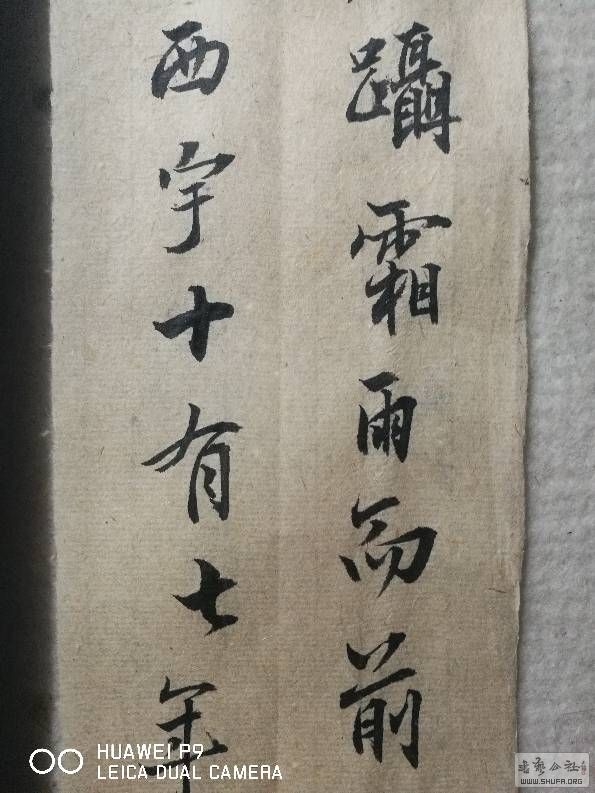 躡霜雨而前
西宇十有七年
HUAWEI P9
LEICA DUAL CAMERA
书艺公社
WWW.SHUFA.ORG